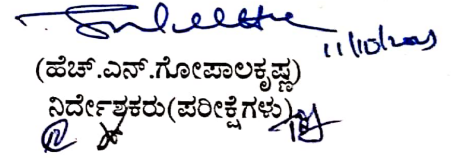 11/10/2023
(ಹೆಚ್.ಎನ್.ಗೋಪಾಲಕೃಷ್ಣ)
ನಿರ್ದೇಶಕರು(ಪರೀಕ್ಷೆಗಳು)